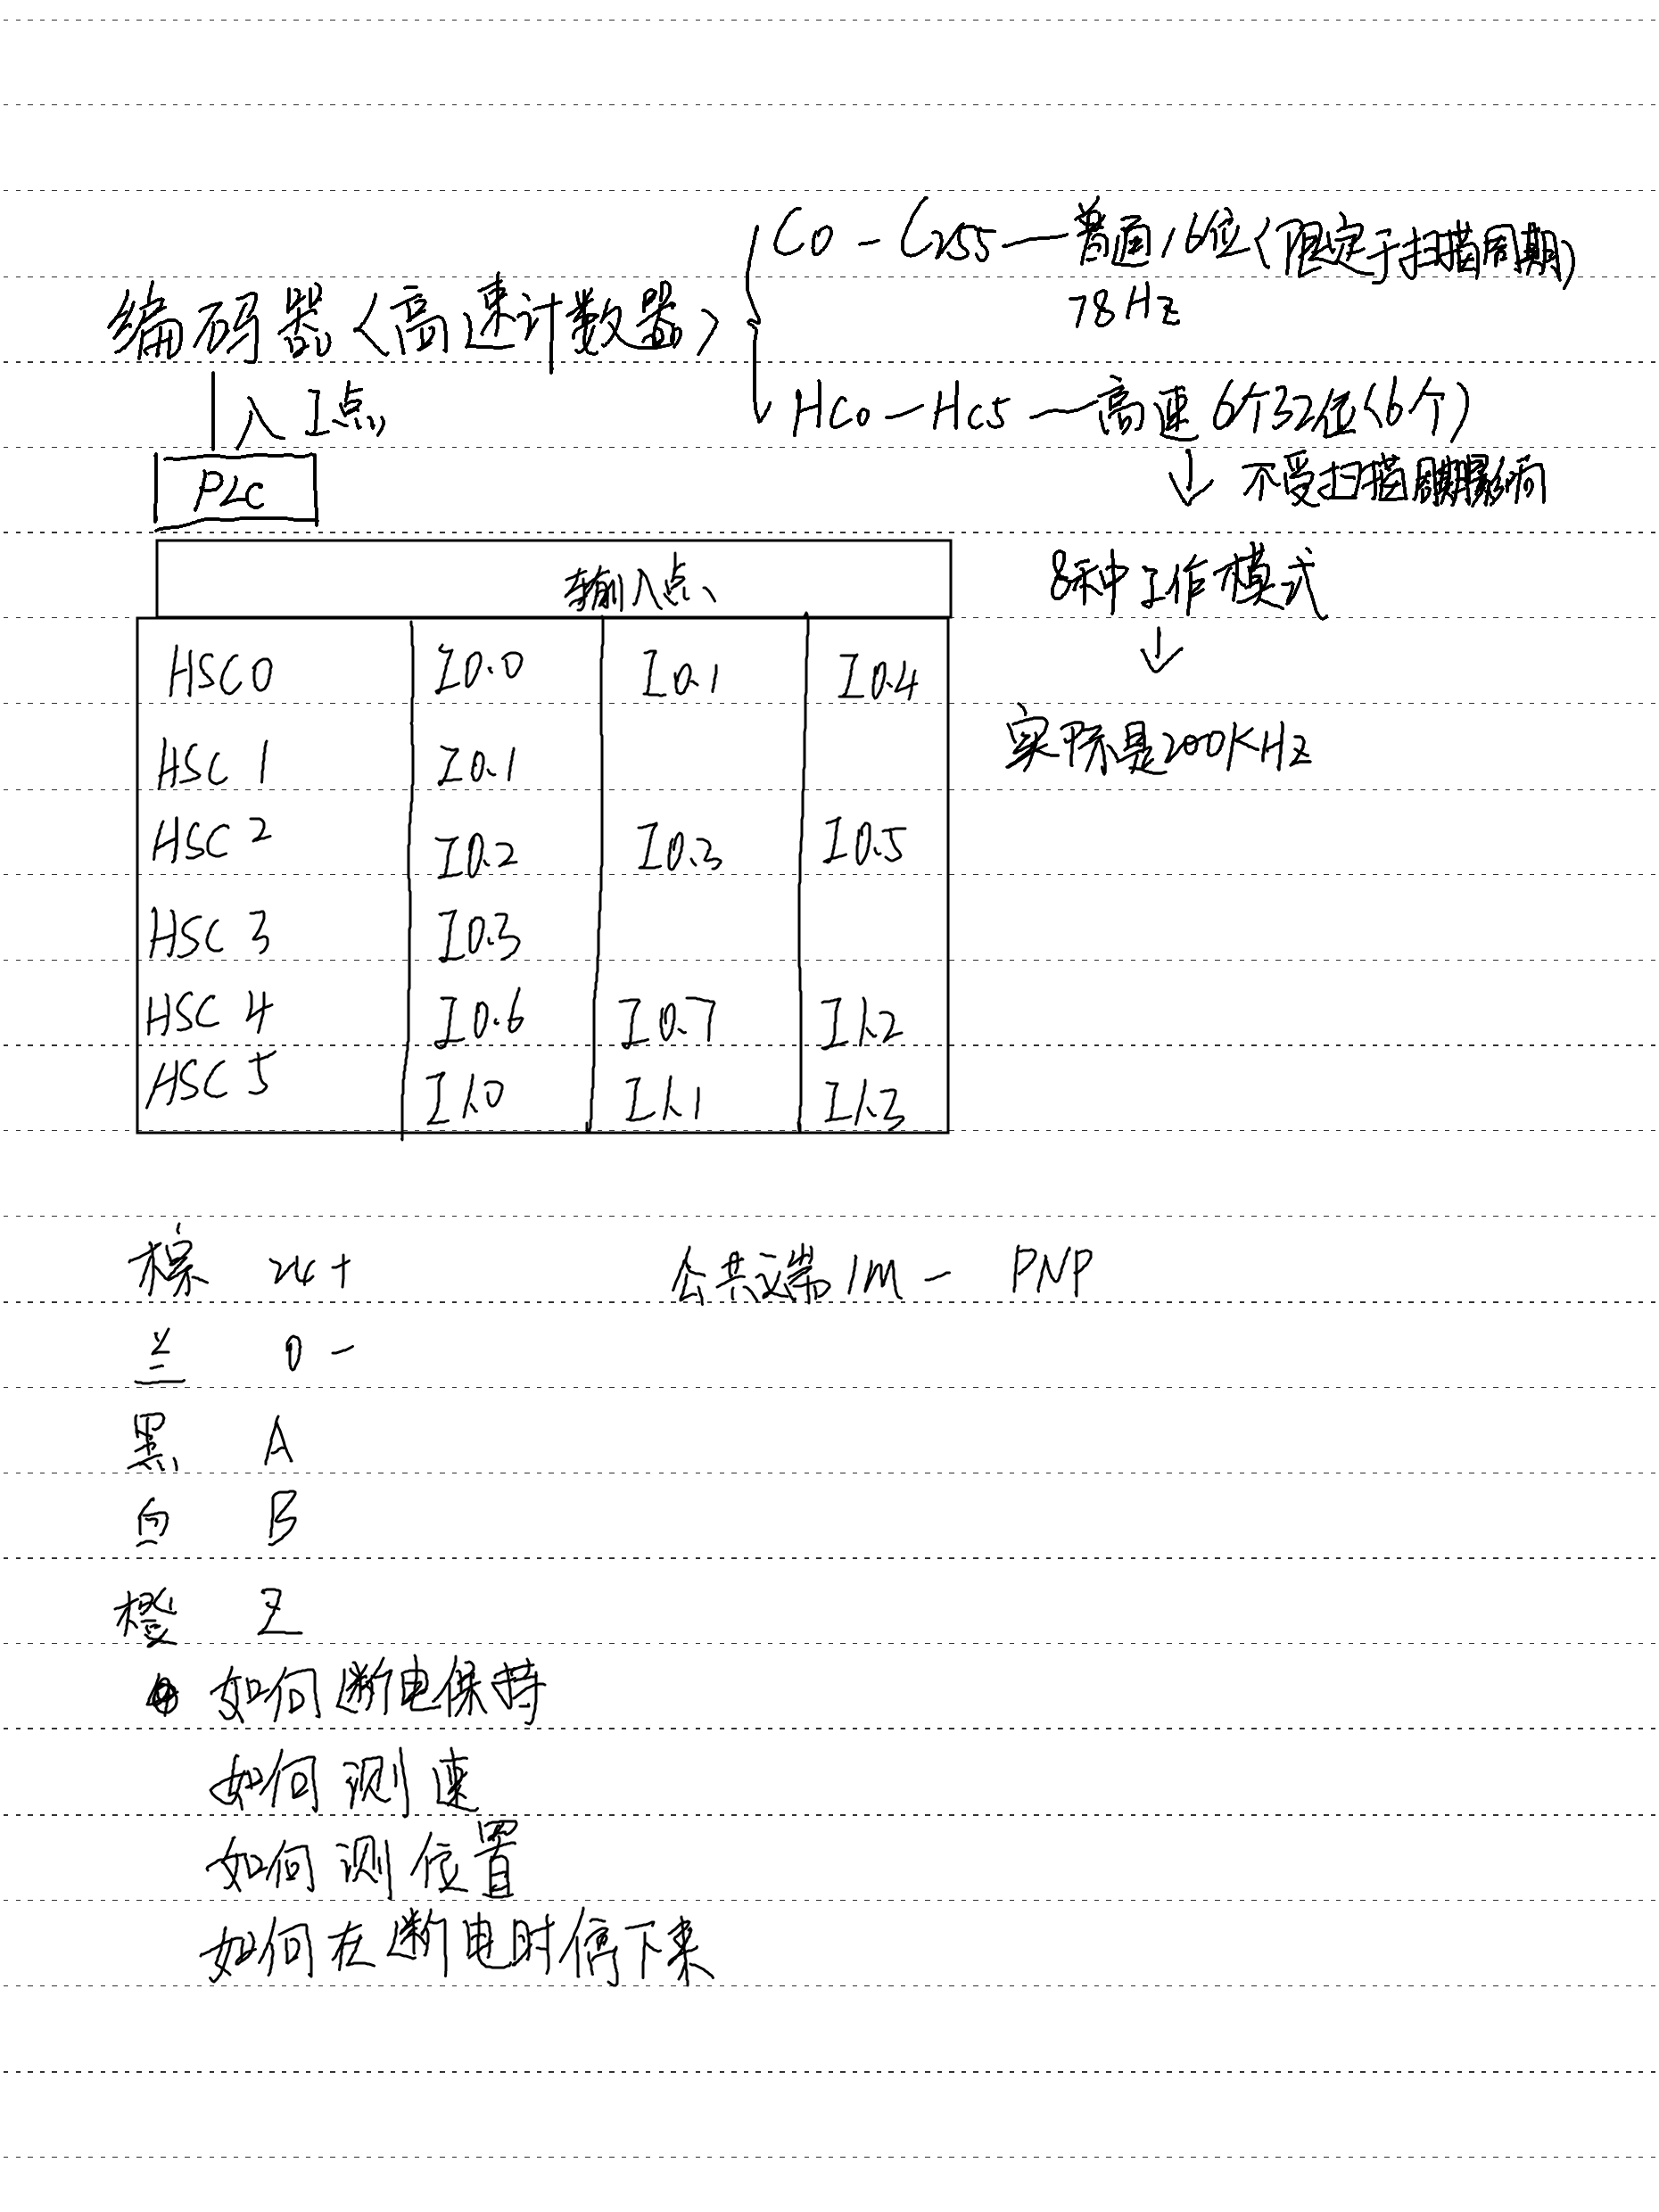 C0－C255——普通16位(限定于扫描周期)
78Hz
编码器(高速计数器)
HC0—HC5——高速6个32位(6个)
入I点
↓ 不受扫描周期影响
PLC
8种工作模式
↓
实际是200KHz
输入点
HSC0 I0.0 I0.1 I0.4
HSC1 I0.1
HSC2 I0.2 I0.3 I0.5
HSC3 I0.3
HSC4 I0.6 I0.7 I1.2
HSC5 I1.0 I1.1 I1.3
棕 24+ 公共端1M－ PNP
兰 0－
黑 A
白 B
橙 Z
如何断电保持
如何测速
如何测位置
如何在断电时停下来